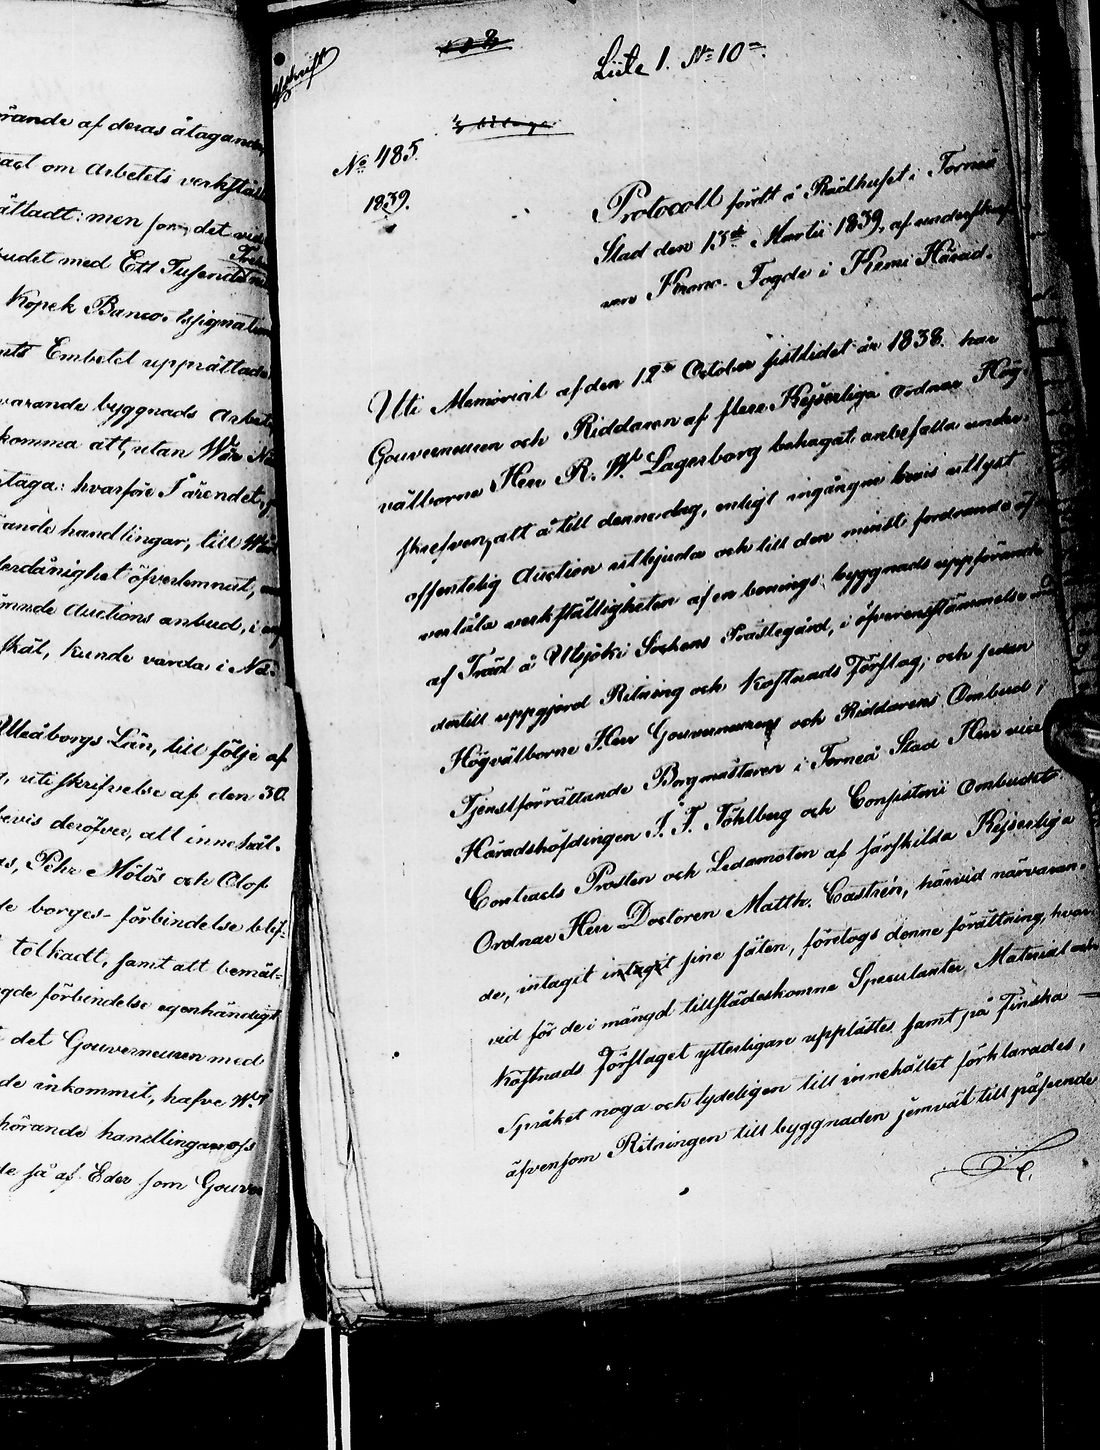 rande af deras åtagande
om Arbetets verkstäl
ättadt: men som det
Tre
budet med Ett Tusende
Kopek Banco Assignation
Embetet upprättade
varande byggnads Arbete
komma att, utan
taga: hvarföre i ärendet,
ande handlingar, till
erdånighet öfverlemnat,
ämnde Auctions anbud, i
skäl, kunde varda i Nå-
Uleåborgs Län, till följe af
uti skrifvelse af den 30
bevis deröfver, att innehål-
Pehr Mölös och Olof
de borges-förbindelse blif-
tolkadt, samt att bemäl-
gde förbindelse egenhändigt
det Gouverneuren med
de inkommit, hafve
hörande handlingar oss
de så af Eder som Gouver
Afskrift
Liite 1. No 10
No 485.
1839.
Protocoll fördt å Rådhuset i Torneå
Stad den 13de Martii 1839, af underskref-
ven Krono-Fogde i Kemi Härad.
Uti Memorial af den 12te October sistlidet år 1838. har
Gouverneuren och Riddaren af flere Kejserliga Ordnar Hög-
välborne Herr R. W. Lagerborg behagat anbefalla under-
skrefven, att å till denne dag, enligt ingångne bevis utlyst
offentelig Auction utbjuda och till den minst fordrande
verkställigheten af en bonings byggnads uppförande
af Träd å Utsjoki Sockens Prästegård, i öfverensstämmelse
dertill uppgjord Ritning och Kostnads Förslag; och sedan
Högvälborne Herr Gouverneurens och Riddarens Ombud,
Tjenstförrättande Borgmästaren i Torneå Stad Herr vice
Häradshöfdingen J. F. Föhlberg och Consistorii Ombudet
Contracts Prosten och Ledamoten af särskilda Kejserliga
Ordnar Herr Doctoren Matth. Castrén, härvid närvaran-
de, intagit intagit sine säten, företogs denne förättning, hvar-
vid för de i mängd tillstädeskomne Speculanter, Material och
Kostnads Förslaget ytterligare upplästes samt på Finska
Språket noga och tydeligen till innehållet förklarades,
äfvensom Ritningen till byggnaden jemväl till påseende